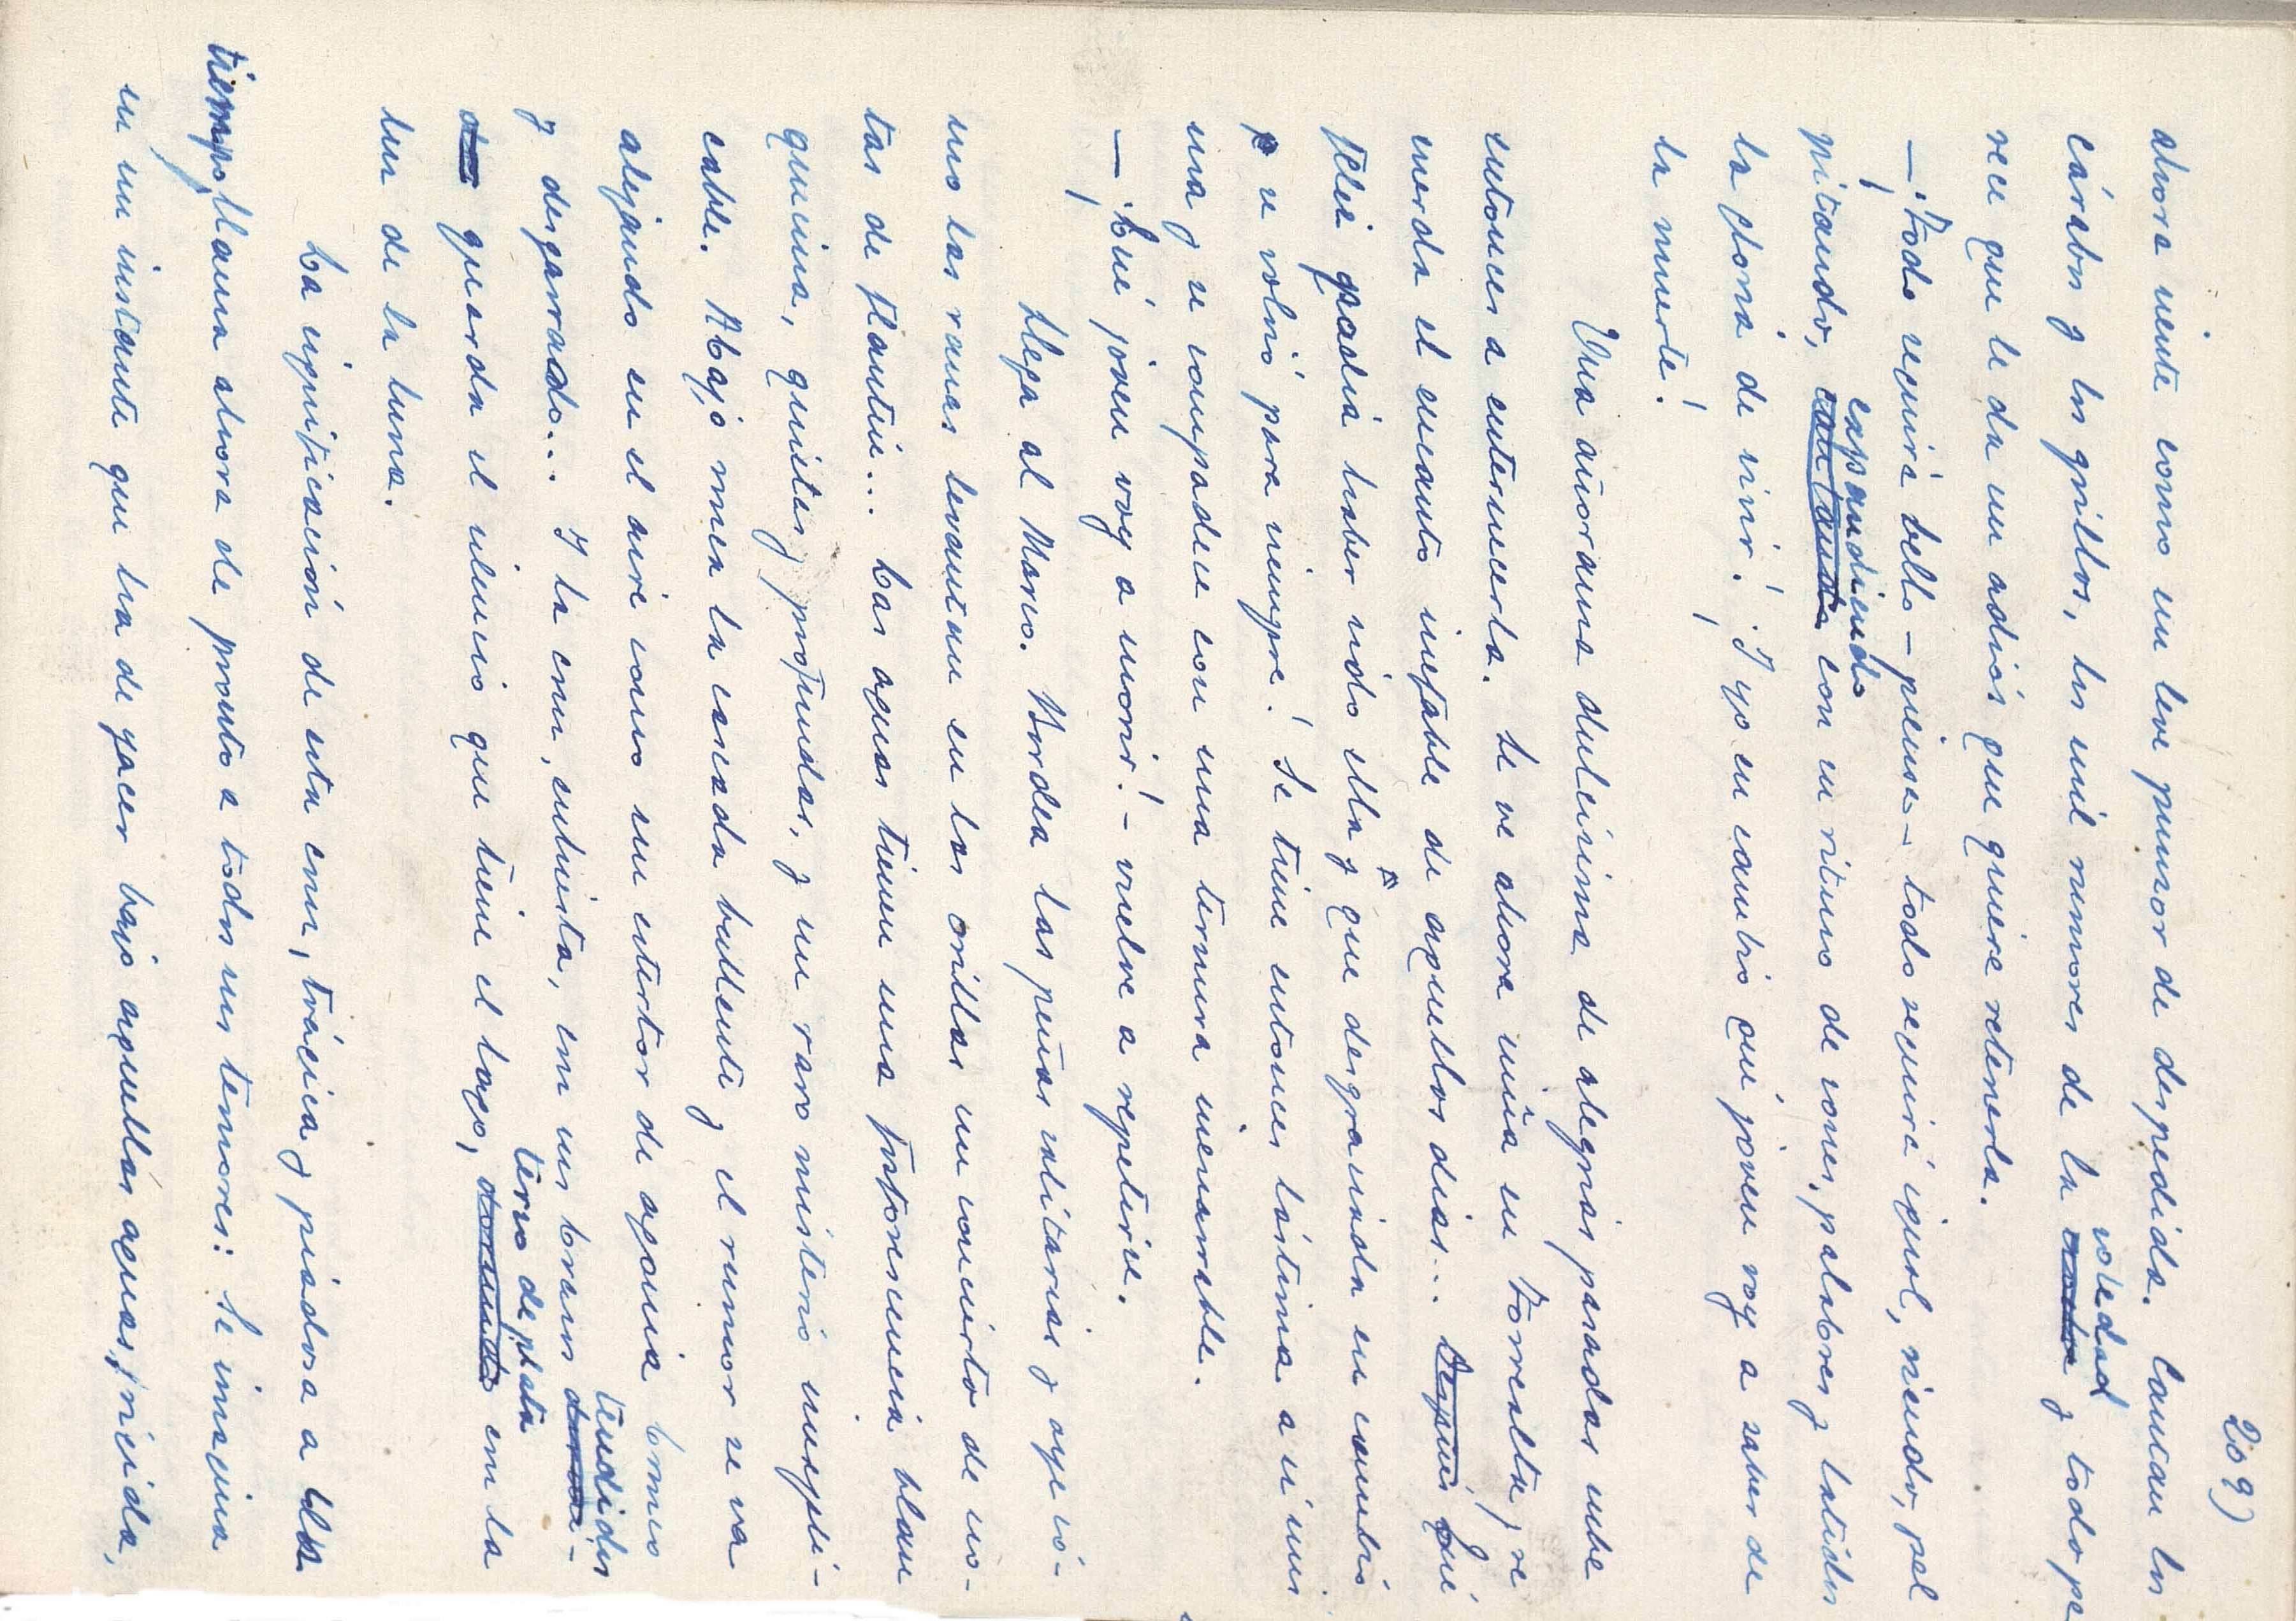 209)
ahora siente como un leve pumor de despedida. Cantan los
cárabos y los grillos, los mil rumores de la soledad y todo pa
rece que le da un adiós que quiere retenerla.
—¡Todo seguirá bello – piensa – todo seguirá igual, riendo, pal
pitando, expandiendo con su ritmo de sones, palabras y latidos
la gloria de vivir! ¡Y yo en cambio qué joven voy a saber de
la muerte!
Una añoranza dulcísima de alegrías pasadas sube
entonces a enternecerla. Se ve ahora niña en Torrealta, re
cuerda el encanto inefable de aquellos días... Qué
feliz podía haber sido ella y qué desgraciada en cambio
se volvió para siempre! Se tiene entonces lástima a sí mis
ma y se compadece con una ternura inenarrable.
—¡Qué joven voy a morir! – vuelve a repetirse.
Llega al Morio. Bordea las peñas solitarias y oye có-
mo las ranas levantan en las orillas un concierto de no-
tas de flautín... Las aguas tienen una fosforescencia blan
quecina, quietas y profundas, y un raro misterio inexpli-
cable. Abajo suena la cascada bullente y el rumor se va
alejando en el aire como un estertor de agonía bronco
y desgarrado... Y la cruz, enhiesta, con sus brazos tendidos
guarda el silencio que tiene el lago, terso de plata con la
luz de la luna.
La significación de esta cruz, trágica y piadosa a un
tiempo, llama ahora de pronto a todos sus temores: Se imagina
en un instante que ha de yacer bajo aquellas aguas, suicida,